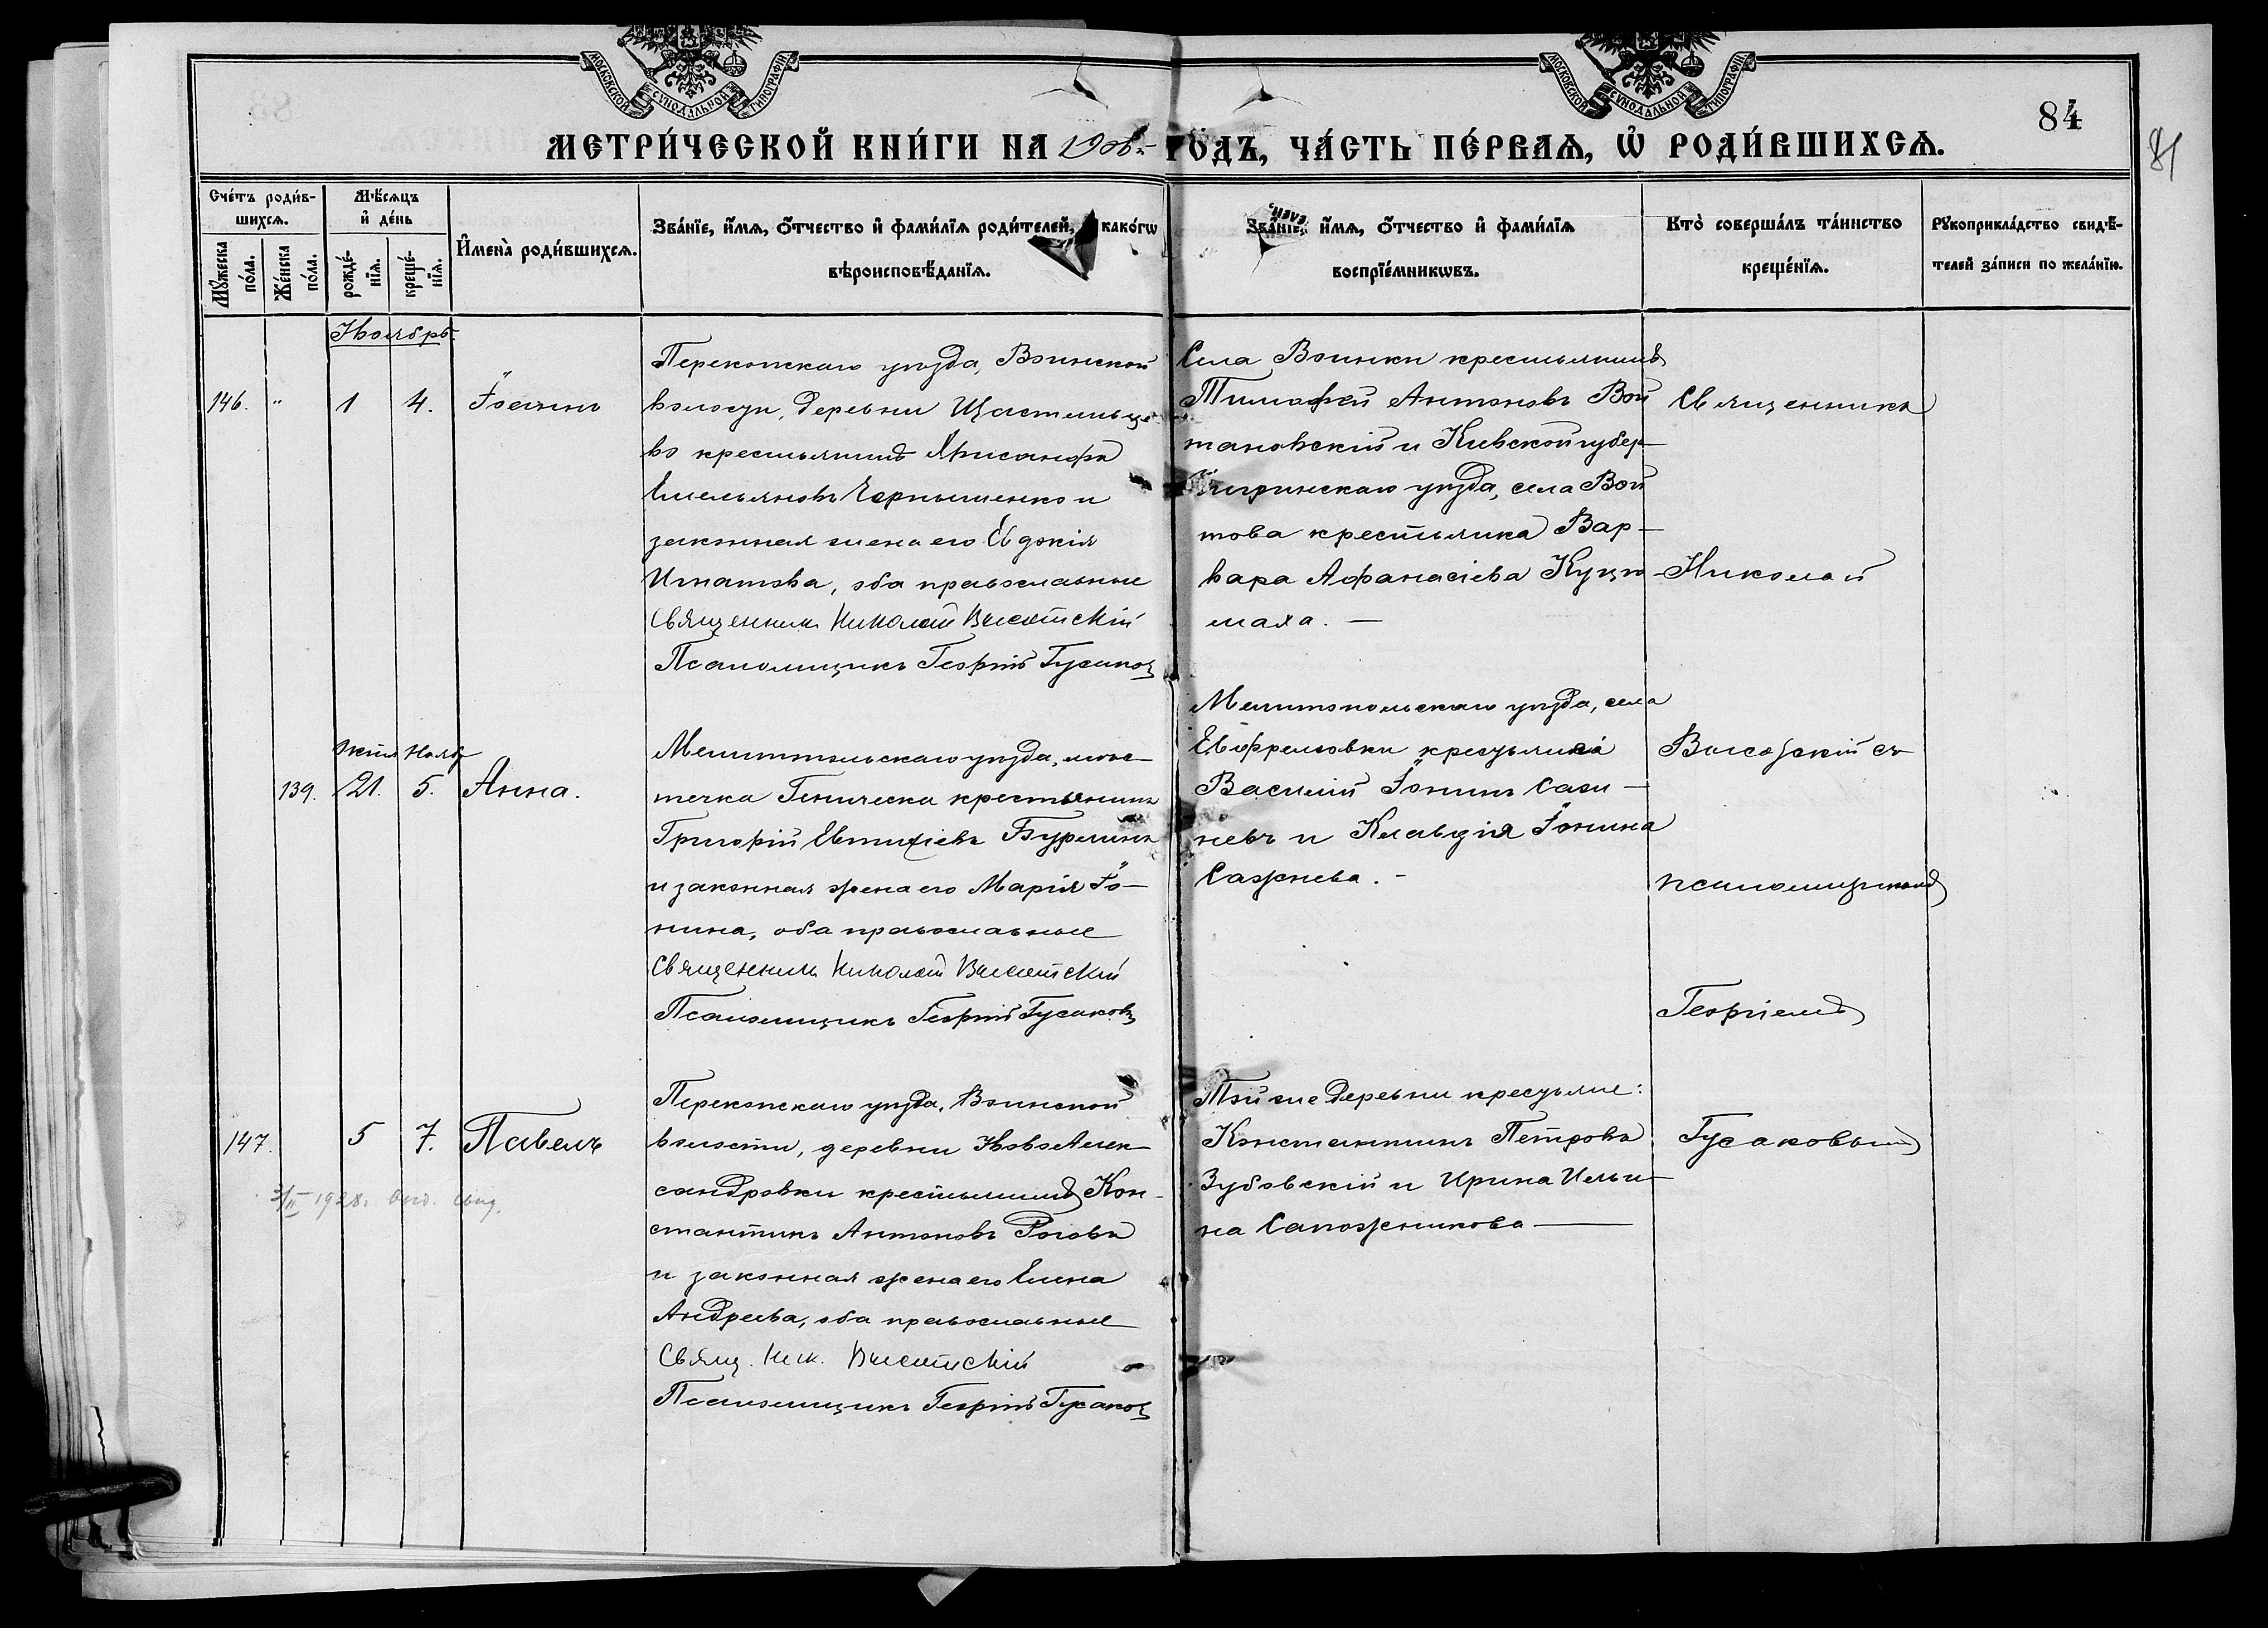 МОСКОВСКОЙ СѴНОДАЛЬНОЙ ТИПОГРАФІИ
МОСКОВСКОЙ СѴНОДАЛЬНОЙ ТИПОГРАФІИ
84
МЕТРИ́ЧЕСКОЙ КНИ́ГИ НА 1906 г. ГО́ДЪ, ЧА́СТЬ ПЕ́РВАѦ, Ѡ РОДИ́ВШИХСѦ.
Сче́тъ роди́в-
шихсѧ.
Мꙋ́жеска по́ла.
Же́нска по́ла.
Мѣ́сѧцъ
и҆ де́нь
рожде́-
нїѧ.
креще́-
нїѧ.
И҆мена̀ роди́вшихсѧ.
Зва́нїе, и҆́мѧ, ѻ҆́тчество и҆ фами́лїѧ роди́телей, како́гѡ
вѣроисповѣ́данїѧ.
Зва́нїе, и҆́мѧ, ѻ҆́тчество и҆ фами́лїѧ
воспрїе́мникѡвъ.
Кто̀ соверша́лъ та́инство
креще́нїѧ.
Рꙋкоприкла́дство свидѣ́-
телей за́писи по жела́нїю.
Ноябрь
146. " 1 4. Іоаннъ
Перекопскаго уѣзда, Воинской
волости, деревни Щастливце
во крестьянинъ Хрисанфъ
Емельяновъ Чернышенко и
законная жена его Евдокія
Игнатова, оба православные
Священникъ Николай Высотскій
Псаломщикъ Георгій Гусаковъ
Села Воинки крестьянинъ
Тимофей Антоновъ Вой
тановскій и Кіевской губер
Чигиринскаго уѣзда, села Вой
това крестьянка Вар-
вара Афанасіева Куцо
маха. —
Священникъ
Николай
Октяб Нояб
139. 21. 5. Анна.
Мелитопольскаго уѣзда, мѣс-
течка Геническа крестьянинъ
Григорій Евтихіевъ Бурлинъ
и законная жена его Марія Іо-
нина, оба православные
Священникъ Николай Высотскій
Псаломщикъ Георгій Гусаковъ
Мелитопольскаго уѣзда, села
Ефремовки крестьянинъ
Василій Іонинъ Саж-
невъ и Клавдія Іонина
Сажнева. -
Высотскій съ
псаломщикомъ
Георгіемъ
147. 5 7. Павелъ
3/II 1928 г. выд. свид.
Перекопскаго уѣзда, Воинской
волости, деревни Ново Алек-
сандровки крестьянинъ Кон-
стантинъ Антоновъ Роговъ
и законная жена его Елена
Андреева, оба православные
Свящ. Ник. Высотскій
Псаломщикъ Георгій Гусаковъ
Той же деревни крестьяне:
Константинъ Петровъ
Зубовскій и Ирина Ильи-
на Сапожникова —
Гусаковымъ